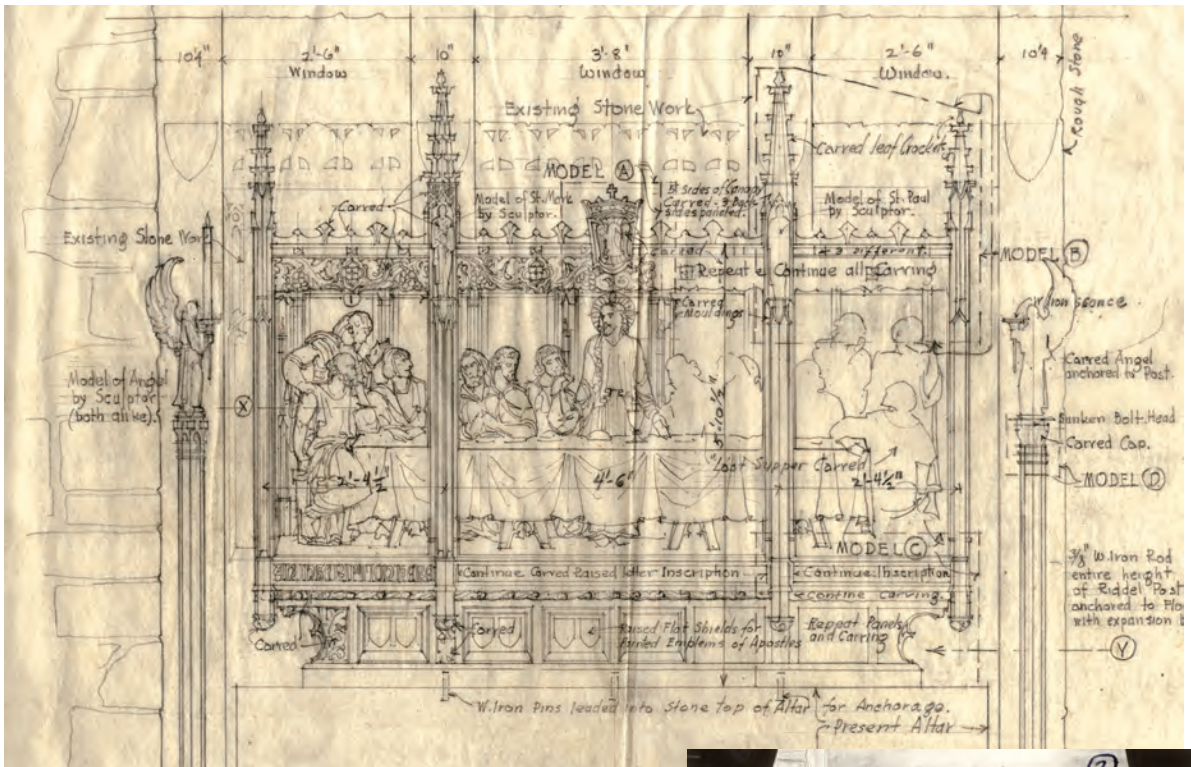 10'4" 2'-6" 10" 3'-8" 10" 2'-6" 10'4
Window Window Window.
Rough Stone
Existing Stone Work
Carved leaf Crockets
MODEL A
Carved
Model of St. Mark
by Sculptor.
Sides of Canopy
Carved - 3 Back
sides paneled.
Model of St. Paul
by Sculptor.
Existing Stone Work
Carved
different
MODEL B
Repeat & Continue all Carving
Carved
Mouldings
W. Iron sconce
Model of Angel
by Sculptor
(both alike).
X
Carved Angel
anchored to Post.
Sunken Bolt-Head
Carved Cap.
MODEL D
5'-10 1/2"
"Last Supper Carved
2'-4 1/2" 4'-6" 2'-4 1/2"
MODEL C
3/8" W. Iron Rod
entire height
of Riddel Post
anchored to
with expansion
Continue Carved Raised letter Inscription.
Continue Inscription
Contine Carving.
Carved
Carved
Raised Flat Shields for
Painted Emblems of Apostles
Repeat Panels
and Carving
Y
W. Iron Pins leaded into Stone top of Altar for Anchorage.
Present Altar
2